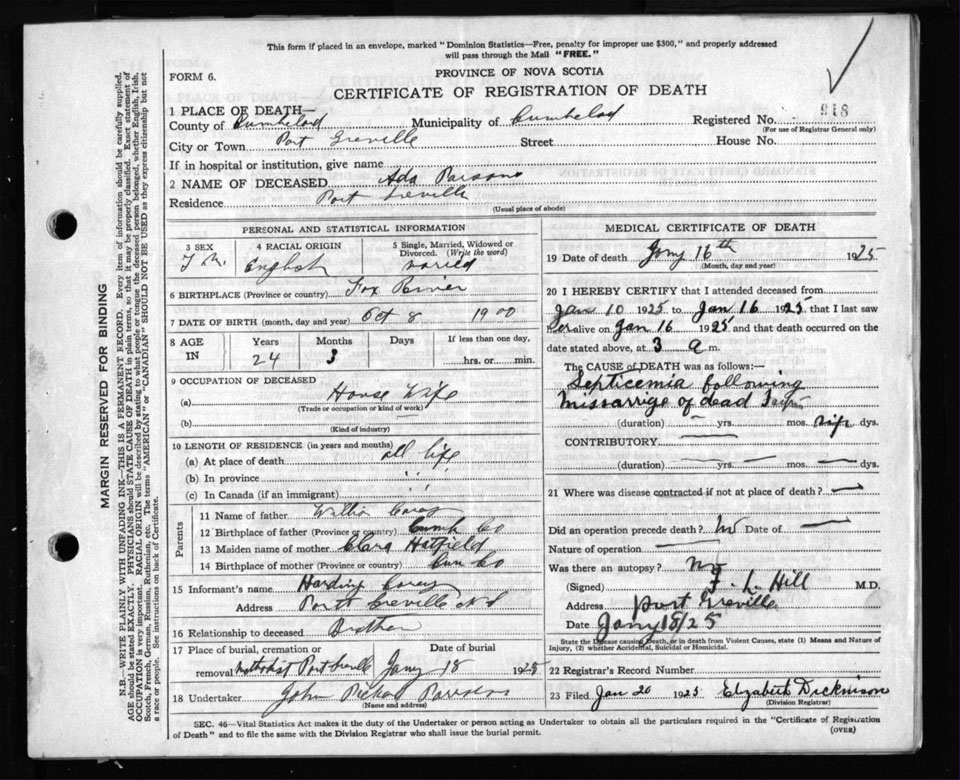 This form if placed in an envelope, marked "Dominion Statistics—Free, penalty for improper use $300," and properly addressed
will pass through the Mail "FREE."
FORM 6.
PROVINCE OF NOVA SCOTIA
CERTIFICATE OF REGISTRATION OF DEATH
1 PLACE OF DEATH—
County of Cumbelad Municipality of Cumbelad Registered No. 918
(For use of Registrar General only)
City or Town Port Greville Street House No.
If in hospital or institution, give name
2 NAME OF DECEASED Ada Parsons
Residence Port Greville
(Usual place of abode)
PERSONAL AND STATISTICAL INFORMATION
3 SEX 4 RACIAL ORIGIN 5 Single, Married, Widowed or
Divorced. (Write the word)
English
6 BIRTHPLACE (Province or country) Fox River
7 DATE OF BIRTH (month, day and year) Oct 8 1900
8 AGE IN Years Months Days If less than one day,
24 3 hrs. or min.
9 OCCUPATION OF DECEASED
(a) House Wife
(Trade or occupation or kind of work)
(b)
(Kind of industry)
10 LENGTH OF RESIDENCE (in years and months)
(a) At place of death all life
(b) In province " "
(c) In Canada (if an immigrant)
Parents
11 Name of father Corey
12 Birthplace of father (Province or country) Cumb Co
13 Maiden name of mother Clara Hatfield
14 Birthplace of mother (Province or country) Cum Co
15 Informant's name Harding Corey
Address Port Greville N S
16 Relationship to deceased Brother
17 Place of burial, cremation or Date of burial
removal Methodist Port Greville Jany 18 1925
18 Undertaker John Parsons
(Name and address)
MEDICAL CERTIFICATE OF DEATH
19 Date of death Jany 16th 1925
(Month, day and year)
20 I HEREBY CERTIFY that I attended deceased from
Jan 10 1925 to Jan 16 1925 that I last saw
her alive on Jan 16 1925 and that death occurred on
date stated above, at 3 a m.
The CAUSE of DEATH was as follows:
Septicemia following
missarrige of dead
(duration) yrs. mos. dys.
CONTRIBUTORY
(duration) yrs. mos. dys.
21 Where was disease contracted if not at place of death?
Did an operation precede death? No Date of
Nature of operation
Was there an autopsy? No
(Signed) F. L. Hill M.D.
Address port Greville
Date
State the Disease causing Death, or in death from Violent Causes, state (1) Means and Nature of
Injury, (2) whether Accidental, Suicidal or Homicidal.
22 Registrar's Record Number
23 Filed Jan 20 1925 Elizabeth Dickinson
(Division Registrar)
SEC. 46—Vital Statistics Act makes it the duty of the Undertaker or person acting as Undertaker to obtain all the particulars required in the "Certificate of Registration
of Death" and to file the same with the Division Registrar who shall issue the burial permit. (OVER)
MARGIN RESERVED FOR BINDING
N.B.—WRITE PLAINLY WITH UNFADING INK—THIS IS A PERMANENT RECORD. Every item of information should be carefully supplied.
AGE should be stated EXACTLY. PHYSICIANS should STATE CAUSE OF DEATH in plain terms, so that it may be properly classified. Exact statement of
OCCUPATION is very important. RACIAL ORIGIN will be described by stating to what people or tongue the deceased person belonged, whether English, Irish,
Scotch, French, German, Russian, Ruthenian, etc. The terms "AMERICAN" or "CANADIAN" SHOULD NOT BE USED as they express citizenship but not
a race or people. See instructions on back of Certificate.